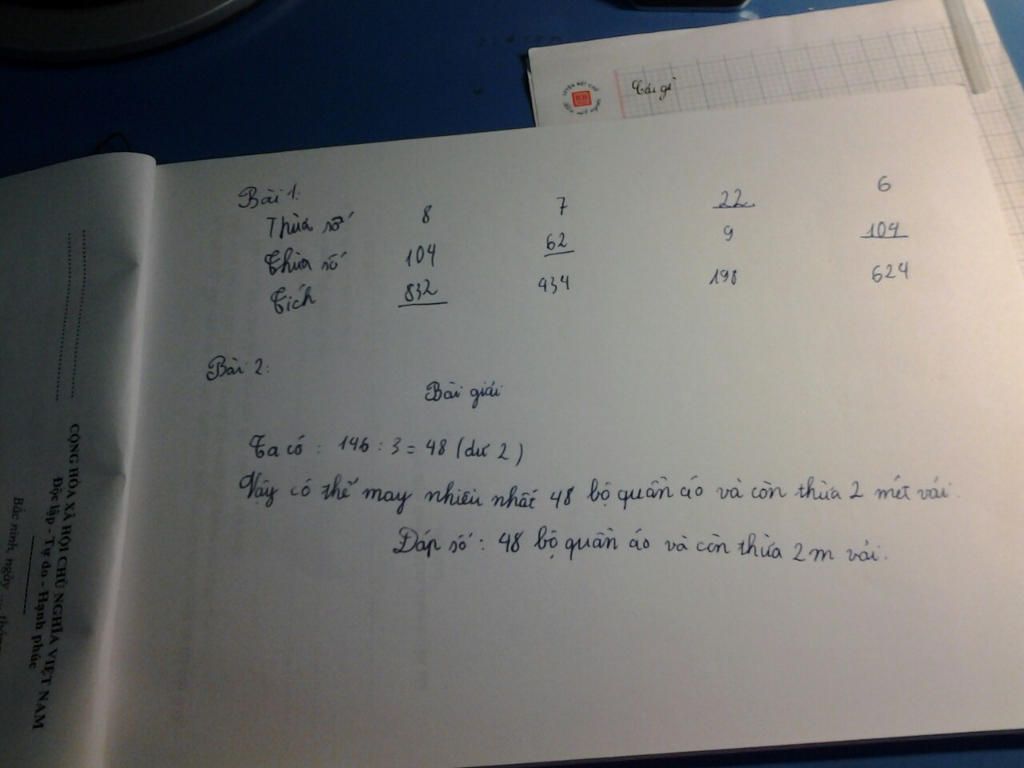 Cái gì
Bài 1:
Thừa số 8 7 22 6
Thừa số 104 62 9 104
Tích 832 434 198 624
Bài 2:
Bài giải
Ta có : 146 : 3 = 48 (dư 2)
Vậy có thể may nhiều nhất 48 bộ quần áo và còn thừa 2 mét vải.
Đáp số : 48 bộ quần áo và còn thừa 2 m vải.
CỘNG HÒA XÃ HỘI CHỦ NGHĨA VIỆT NAM
Độc lập - Tự do - Hạnh phúc
Bắc ninh, ngày